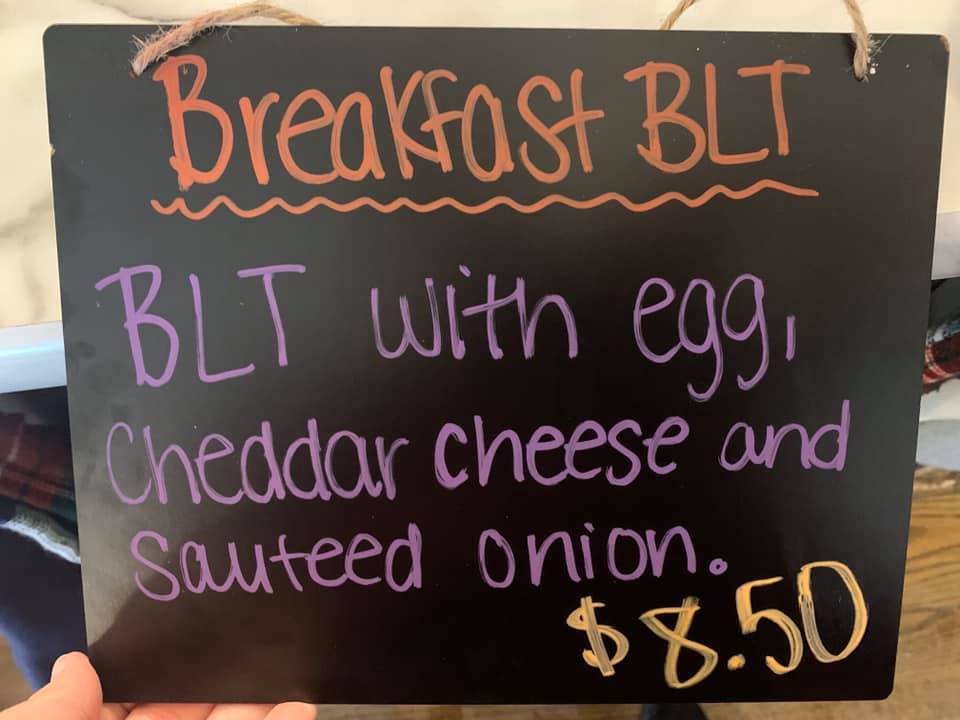 Breakfast BLT
BLT with egg,
Cheddar cheese and
Sauteed onion.
$8.50